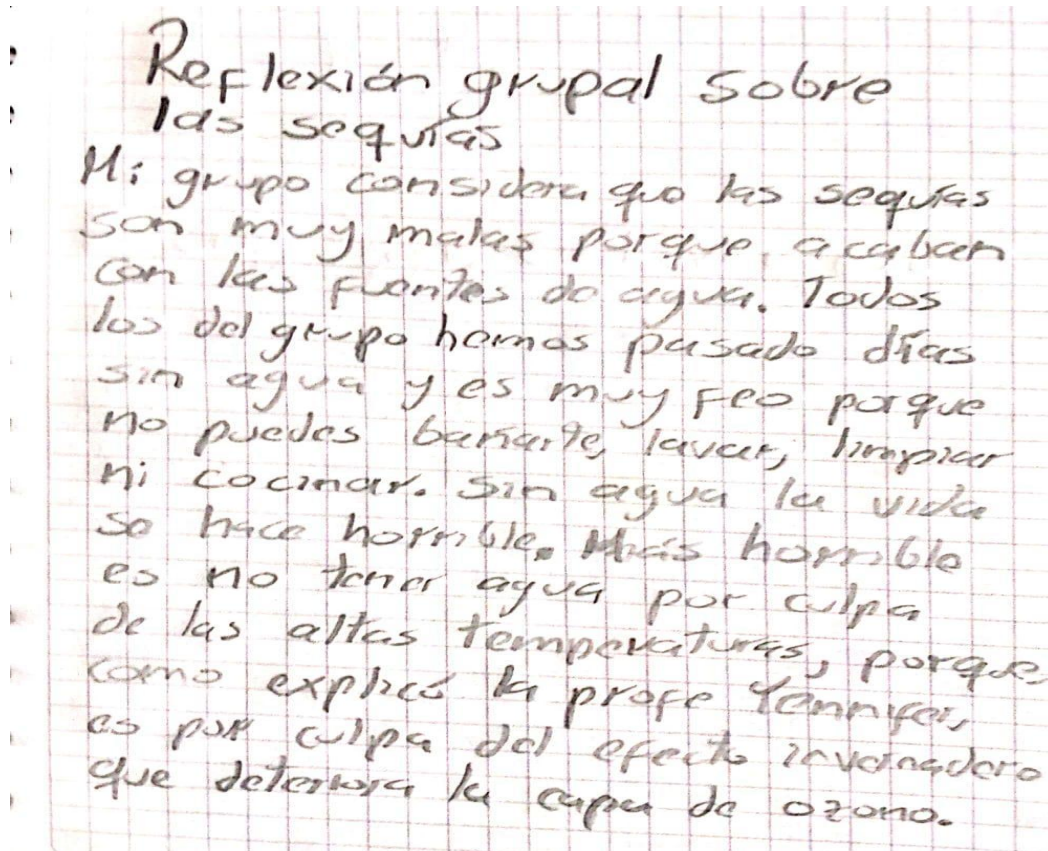 Reflexión grupal sobre
las sequías
Mi grupo considera que las sequías
son muy malas porque acaban
con las fuentes de agua. Todos
los del grupo hemos pasado días
sin agua y es muy feo porque
no puedes bañarte, lavar, limpiar
ni cocinar. Sin agua la vida
se hace horrible. Más horrible
es no tener agua por culpa
de las altas temperaturas, porque,
como explicó la profe Yennifer,
es por culpa del efecto invernadero
que deteriora la capa de ozono.